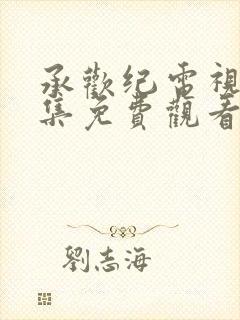 承歡纪電視
集免費觀看
劉志海